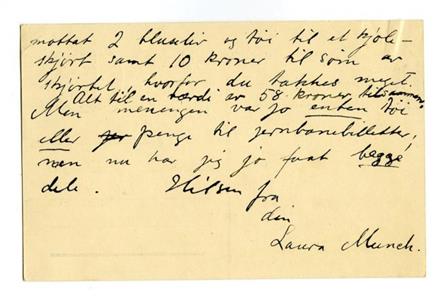 mottat 2 bluseliv og töi til et kjole-
skjört samt 10 kroner til söm av
skjörtet, hvorfor du takkes meget.
Alt til en værdi av 58 kroner, tilsammen.
Men meningen var jo enten töi
eller penge til jernbanebilletter,
men nu har jeg jo faat begge
dele. Hilsen fra
din
Laura Munch.